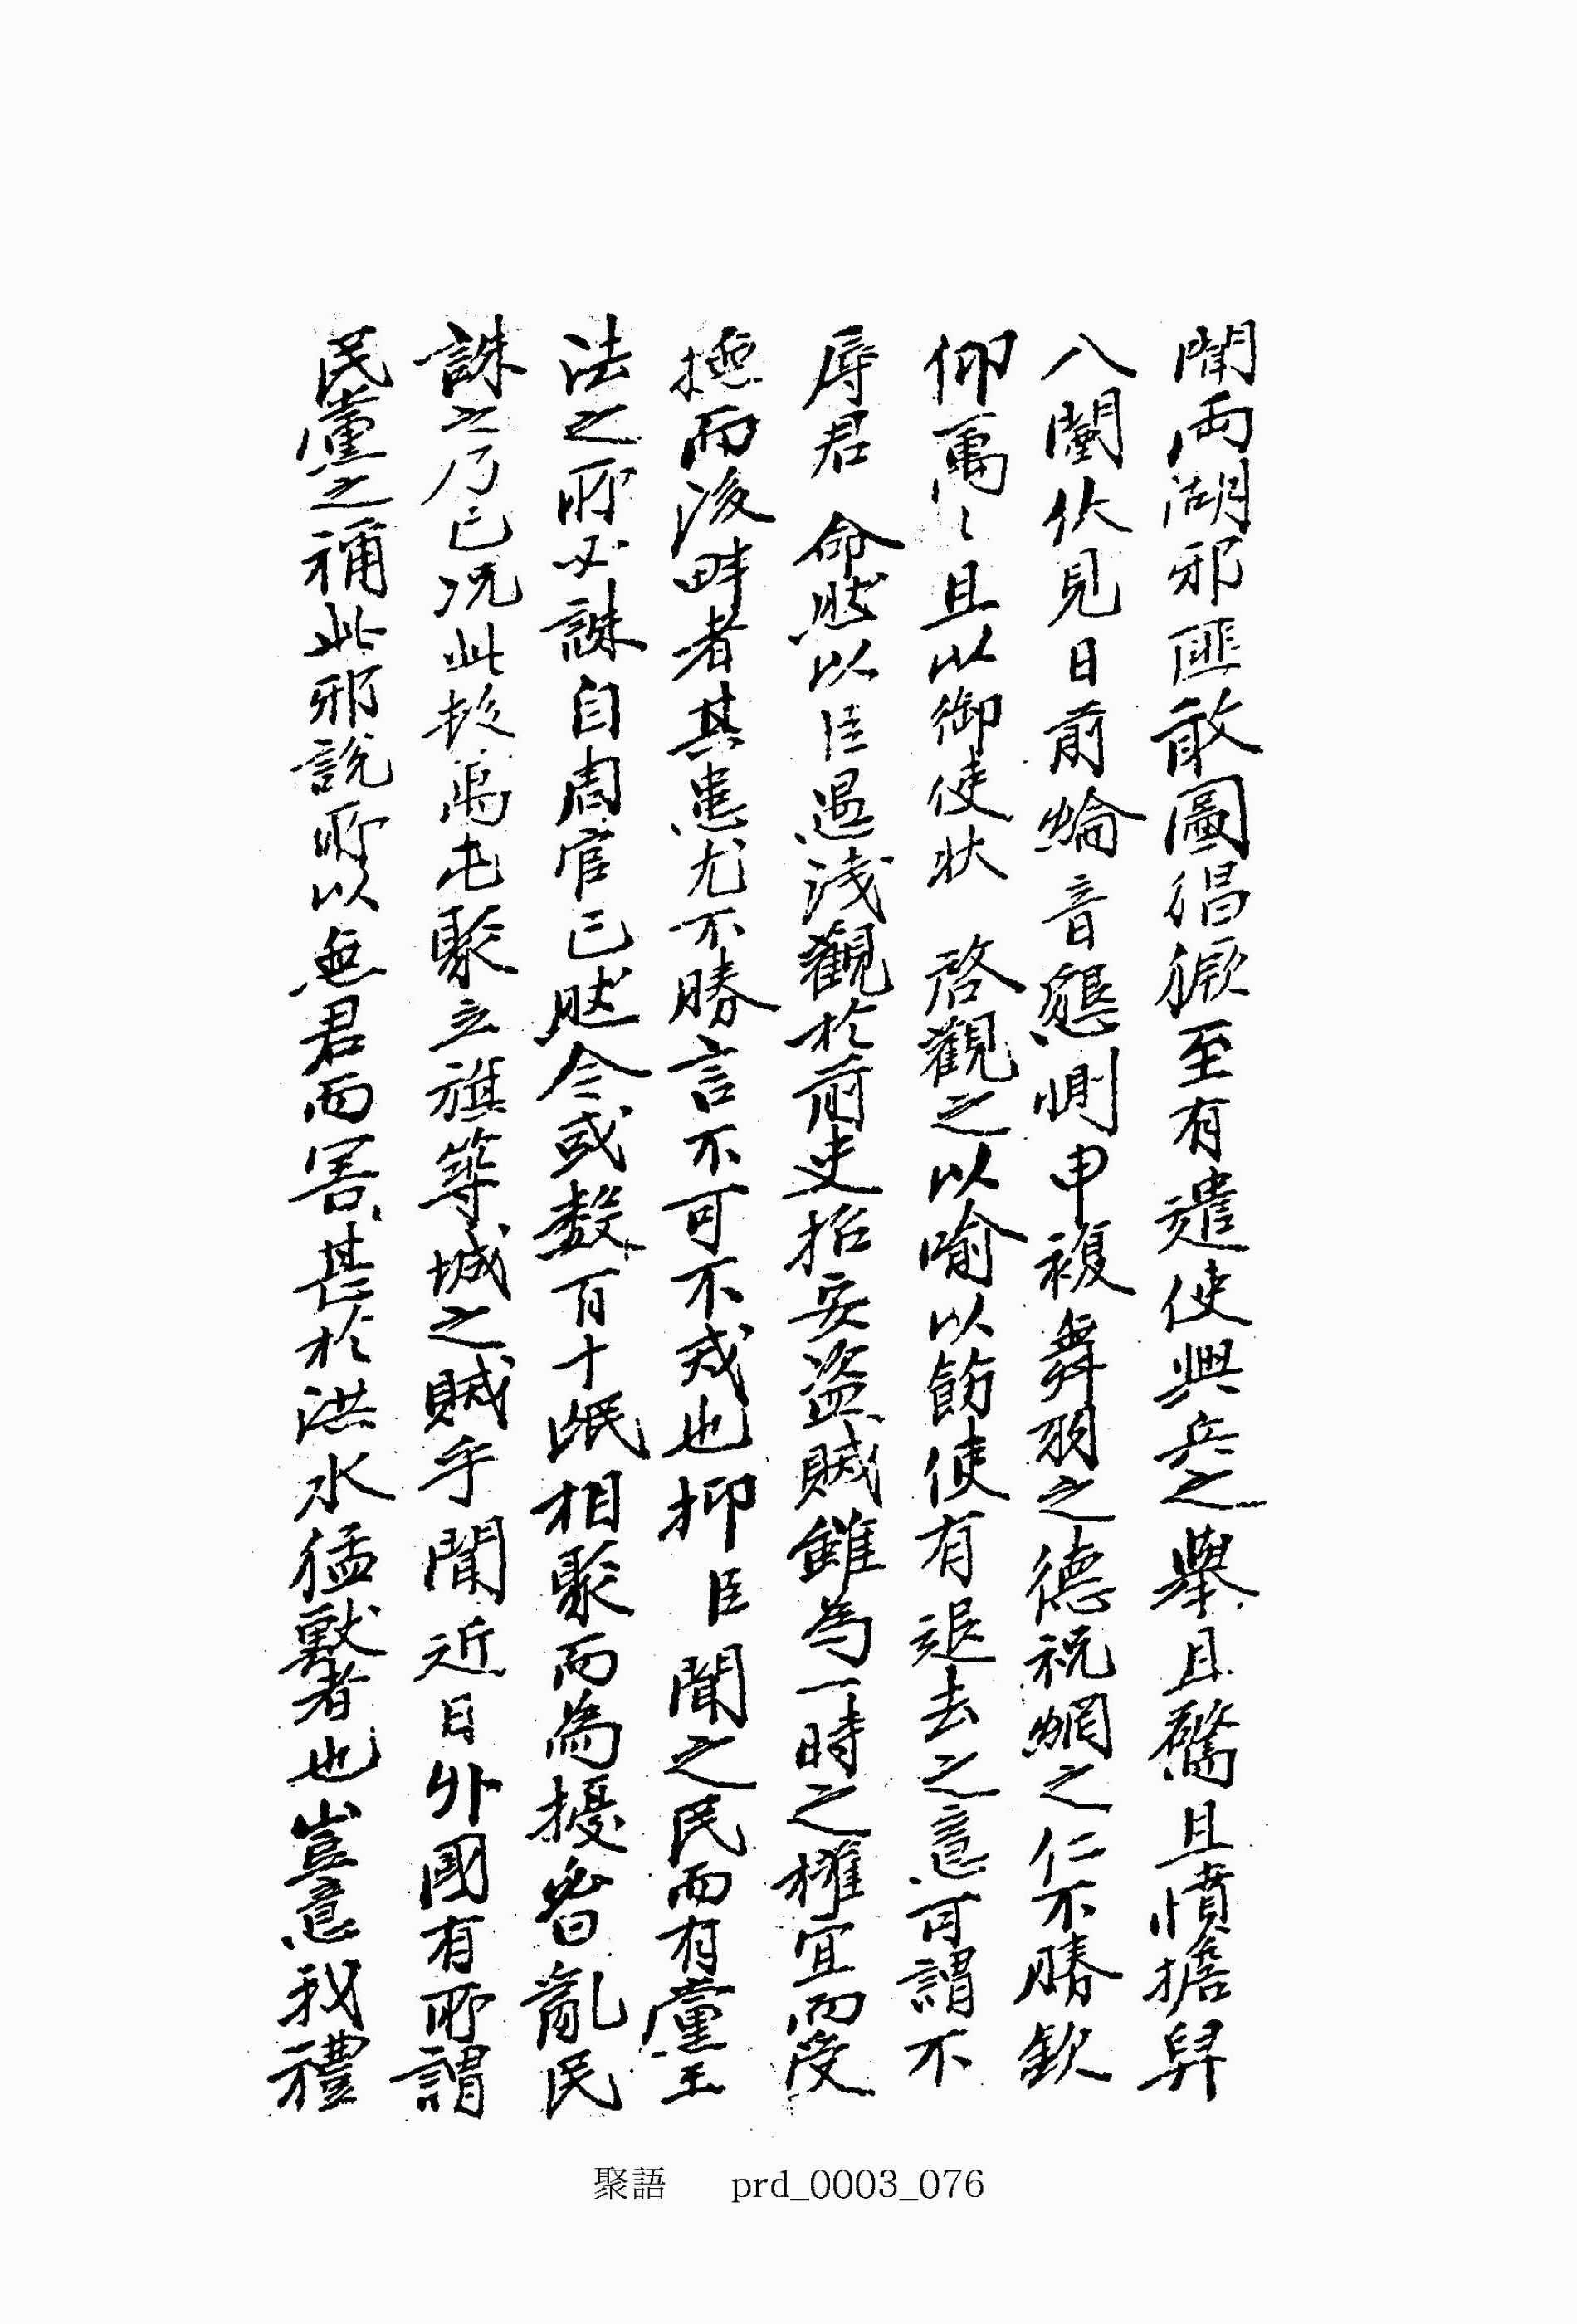 聞両湖邪匪敢圖猖獗至有遣使興兵之擧且驚且憤擔舁
八闉伏見日前綸音懇惻申複舞羽之德祝網之仁不勝欽
仰萬〻且以御使狀 啓觀之以喻以飭使有退去之意可謂不
辱君 命然以臣愚淺觀於前史招安盗賊雖為一時之權宜而受
撫而後畔者其患尤不勝言不可不戒也抑臣聞之民而有黨王
法之所必誅自周官已然今或數百十氓相聚而為擾者曰亂民
誅之乃已况此揭屯聚立旗等城之賊乎聞近日外國有所謂
民黨之稱此邪說所以無君而害甚於洪水猛獸者也豈意我禮
聚語 prd_0003_076